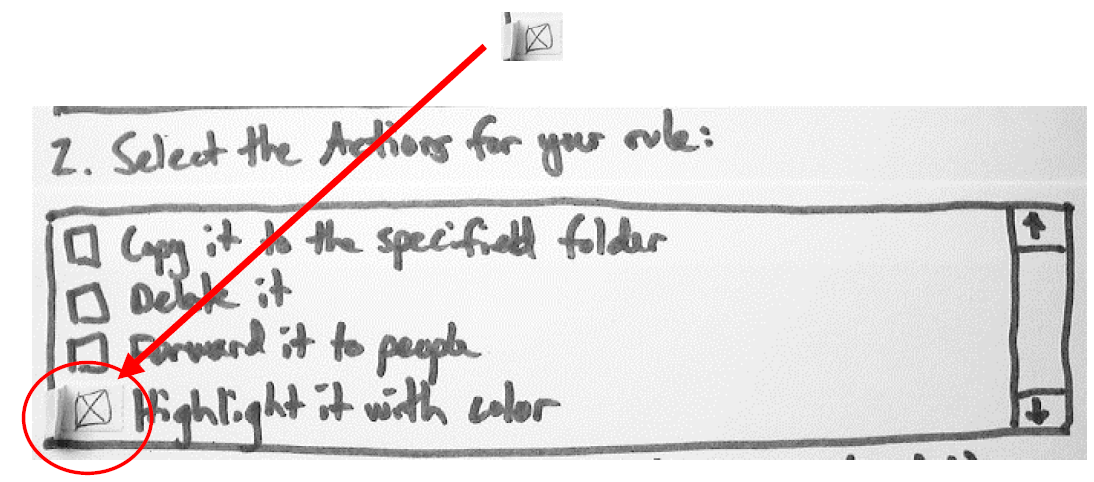 2. Select the Actions for your rule:
Copy it to the specified folder
Delete it
Forward it to people
Highlight it with color